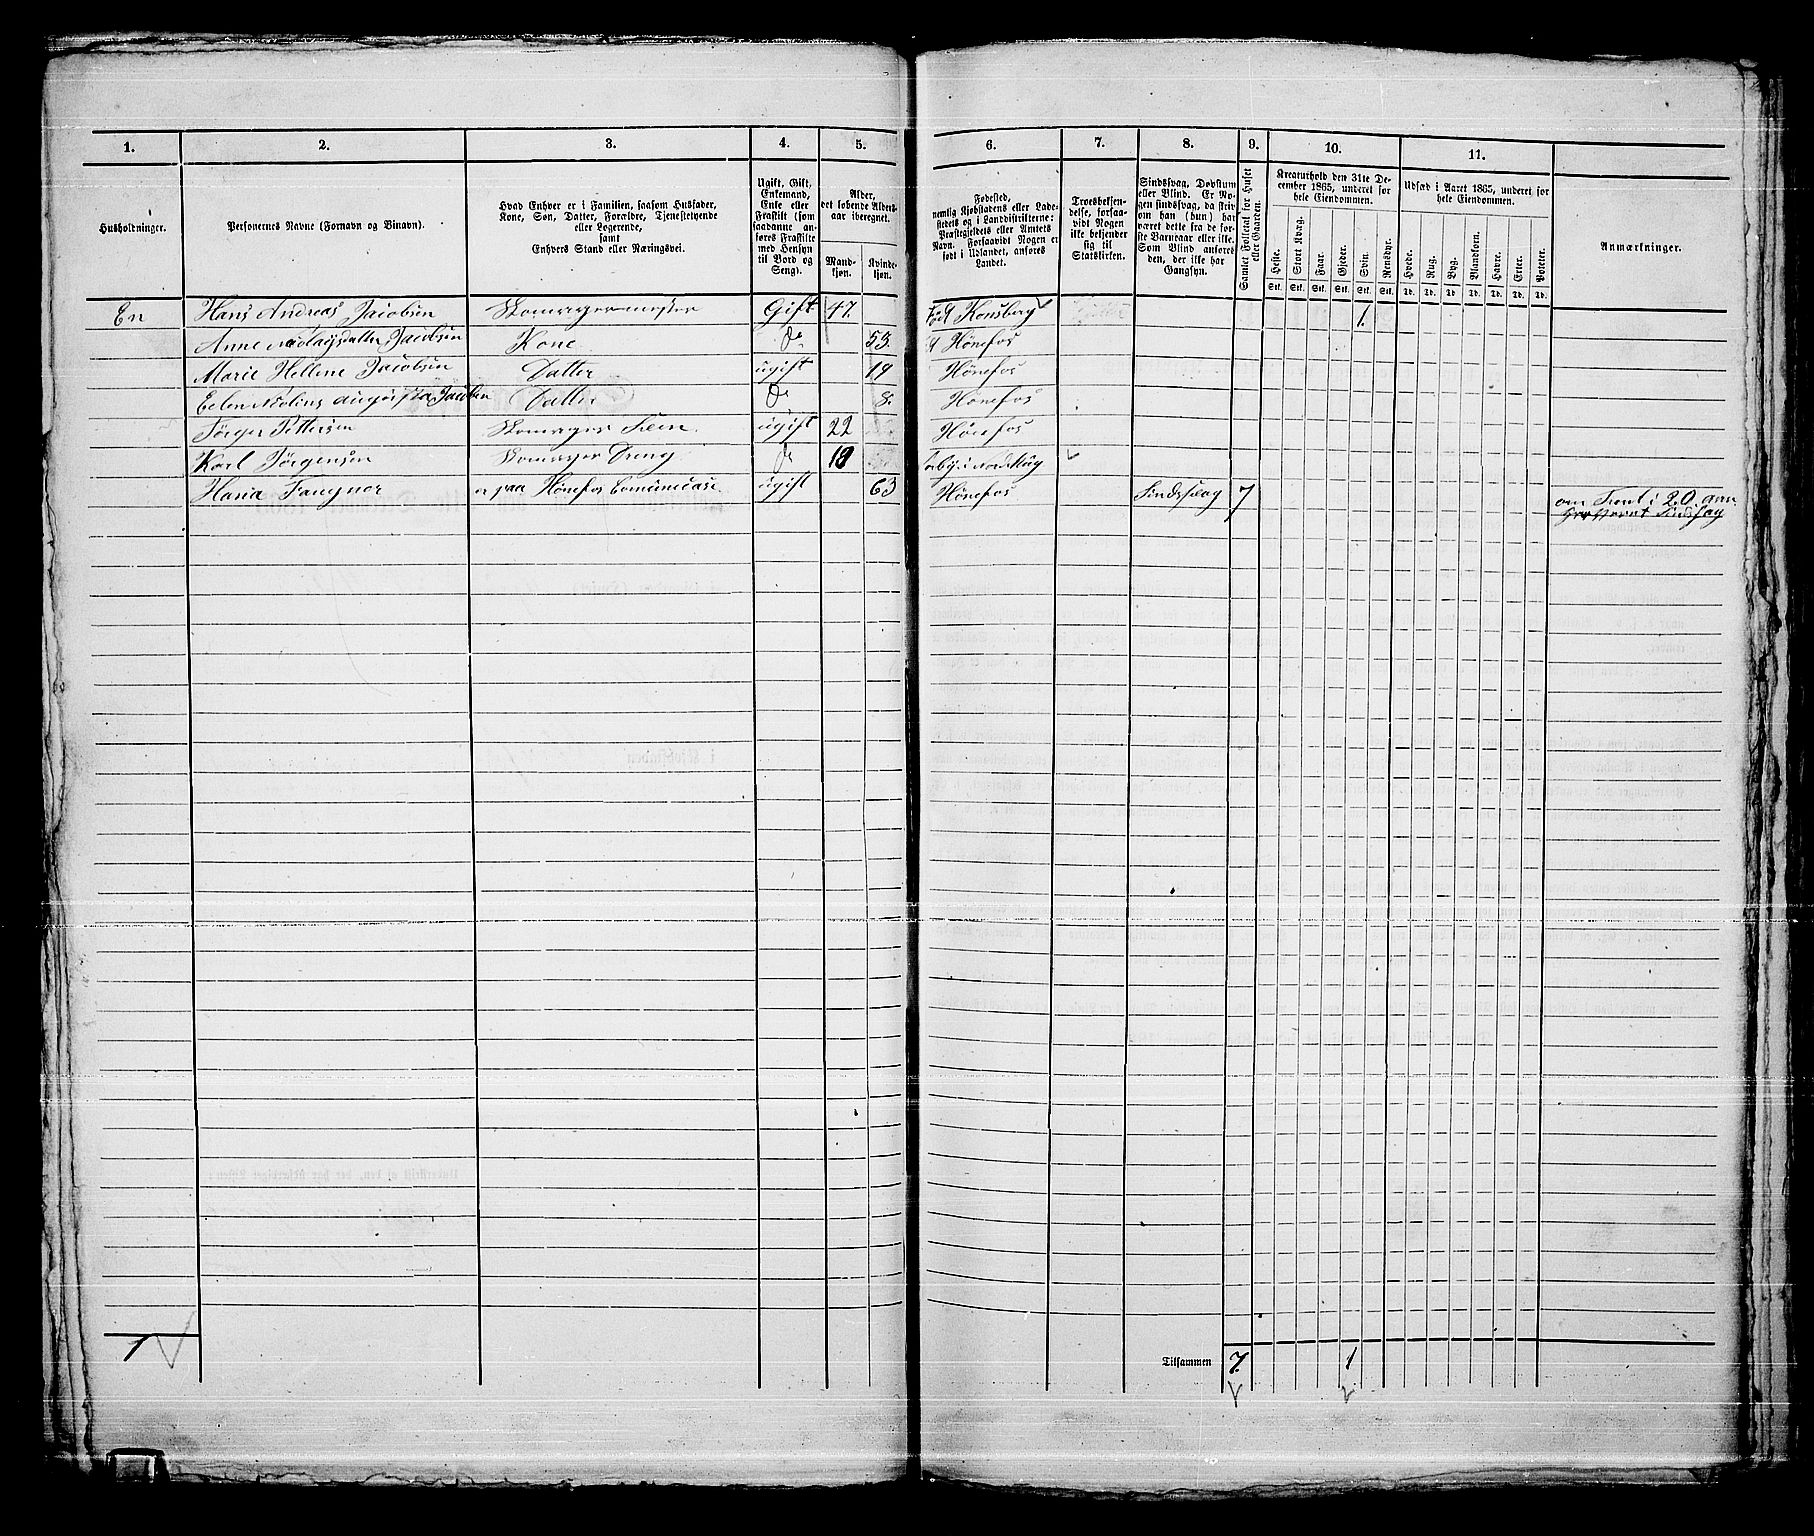 1. 2. 3. 4. 5. 6. 7. 8. 9. 10. 11.
Husholdninger.
Personernes Navne (Fornavn og Binavn).
Hvad Enhver er i Familien, saasom Husfader,
Kone, Søn, Datter, Forældre, Tjenestetyende
eller Logerende,
samt
Enhvers Stand eller Næringsvei.
Ugift, Gift,
Enkemand,
Enke eller
Fraskilt (som
saadanne an-
føres Fraskilte
med Hensyn
til Bord og
Seng).
Alder,
det løbende Alders-
aar iberegnet.
Mand-
kjøn.
Kvinde-
kjøn.
Fødested,
nemlig Kjøbstadens eller Lade-
stedets og i Landdistrikterne:
Præstegjeldets eller Amtets
Navn. Forsaavidt Nogen er
født i Udlandet, anføres
Landet.
Troesbekjen-
delse, forsaa-
vidt Nogen
ikke bekjender
sig til
Statskirken.
Sindssvag, Døvstum
eller Blind. Er No-
gen sindssvag, da skriv
om han (hun) har
været dette fra de før-
ste Barneaar eller ikke.
Som Blind anføres
den, der ikke har
Gangsyn.
Samlet Folketal for Huset
eller Gaarden.
Kreaturhold den 31te De-
cember 1865, underet for
hele Eiendommen.
Heste. Stort Kvæg. Faar. Gjeder. Svin. Rensdyr.
Stk. Stk. Stk. Stk. Stk. Stk.
Udsæd i Aaret 1865, underet for
hele Eiendommen.
Hvede. Rug. Byg. Blandkorn. Havre. Erter. Poteter.
Td. Td. Td. Td. Td. Td. Td.
Anmærkninger.
En Hans Andreas Jacobsen Skomagermester Gift 47. Født Konsberg 1.
Anne Jacobsen Kone do 53. Hønefos
Marie Hellene Jacobsen Datter ugift 19 Hønefos
Jacobsen Datter do 8. Hønefos
Jørger Pettersen Skomager Svein ugift 22 Hønefos
Karl Jørgensen Skomager Dreng do 19
Hana Fangner er paa Hønefos ugift 63 Hønefos Sindssvag 7
om Trent i 20 aar
1 Tilsammen 7. 1